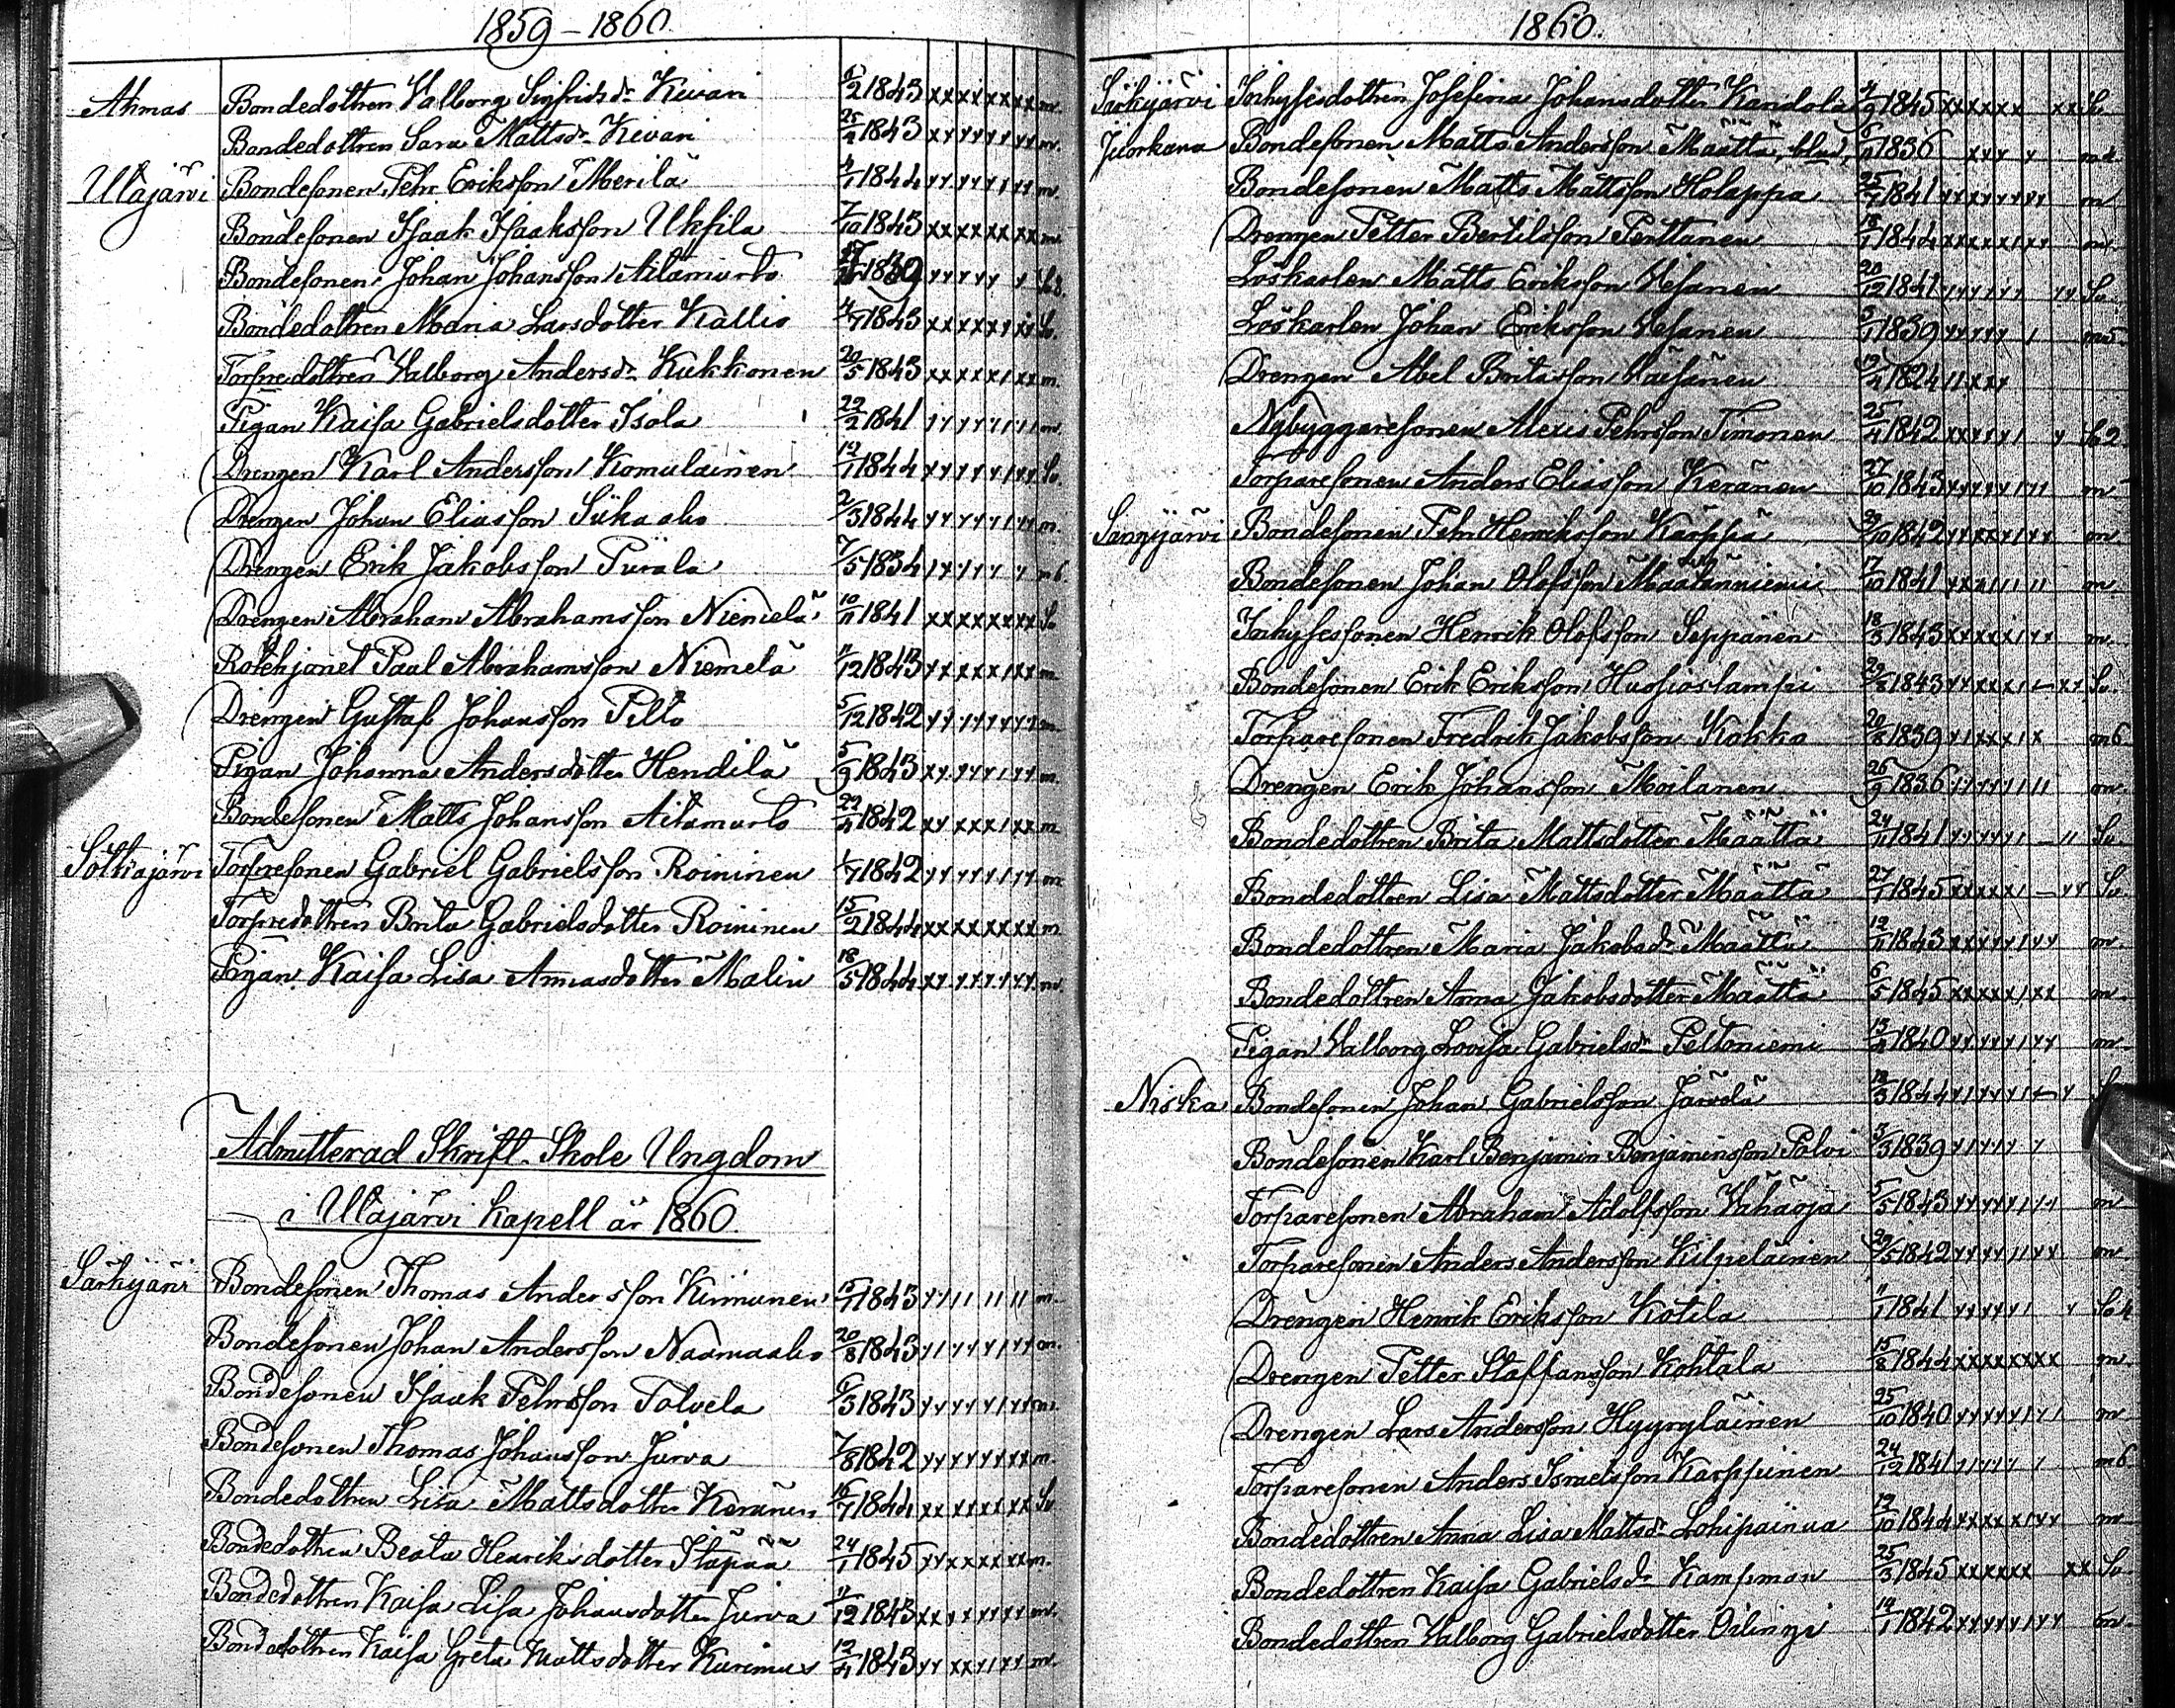 1859 – 1860.
Ahmas Bondedottren Walborg Sigfrids dr Kivari 6/2 1843 xx xx xx xx m.
Bondedottren Sara Mattsdr Kivari 25/2 1843 xx xx xx xx m.
Utajärvi Bondesonen Pehr Eriksson Merilä 4/1 1844 xx xx xx xx m.
Bondesonen Isaak Isaksson Uksila 7/10 1843 xx xx xx xx m.
Bondesonen Johan Johansson Aitamurto
Bondedottren Maria Larsdotter Kallio 4/7 1843 xx xx xx xx Sv.
Torpredottren Walborg Andersdr Kukkonen 20/5 1843 xx xx x/ xx m.
Pigan Kaisa Gabrielsdotter Isola 22/2 1841
Drengen Karl Andersson Komulainen 12/1 1844 Sv.
Drengen Johan Eliasson Siikaaho 2/3 1844 m.
Drengen Erik Jakobsson Piirala 7/5 1834 m6.
Drengen Abraham Abrahamsson Niemelä 10/11 1841 xx xx xx xx Sv
Rotehjonet Paul Abrahamsson Niemelä 11/12 1843 m.
Drengen Gustaf Johansson Pelto 5/12 1842 m.
Pigan Johanna Andersdotter Hendilä 5/9 1843 m.
Bondesonen Matts Johansson Aitamurto 22/4 1842 xx xx x/ xx m
Sotkajärvi Torpresonen Gabriel Gabrielsson Roininen 1/7 1842 m
Torpredottren Brita Gabrielsdotter Roininen 15/2 1844 xx xx xx xx m
Pigan Kaisa Lisa Annasdotter Malin 18/5 1844 m.
Admitterad Skrift-Skole Ungdom
i Utajärvi Kapell år 1860.
Särkijärvi Bondesonen Thomas Andersson Kinnunen 1843 m.
Bondesonen Johan Andersson Naamaaho 20/8 1843 m.
Bondesonen Isaak Pehrsson Talvela 6/3 1843 m.
Bondesonen Thomas Johansson Jurva 7/8 1842 m.
Bondedottren Lisa Mattsdotter Keränen 16/7 1844 xx xx xx xx Sv
Bondedottren Beata Henriksdotter Itäpää 24/1 1845 m.
Bondedottren Kaisa Lisa Johansdotter Jurva 11/12 1843 m.
Bondedottren Kaisa Greta Mattsdotter Kurimus 12/4 1843 m.
1860.
Särkijärvi Inhysesdottren Josefina Johansdotter Kandola 4/9 1845 xx xx xx xx Sv
Juorkuna Bondesonen Matts Andersson Määttä, blind, 1836
Bondesonen Matts Mattsson Holappa 25/7 1841 m
Drengen Petter Bertilsson Penttanen 18/1 1844 m.
Löskarlen Matts Eriksson Wesanen 20/12 1841 Sv.
Löskarlen Johan Eriksson Wesanen 5/1 1839 m5.
Drengen Abel Britasson Waisänen 19/4 1824
Nybyggaresonen Alexis Pehrsson Timonen 25/4 1842 Sv2
Torparesonen Anders Eliasson Keränen 27/10 1843 m.
Sangijärvi Bondesonen Pehr Henriksson Kärppä 29/10 1842 m
Bondesonen Johan Olofsson Maaninniemi 17/10 1841 m.
Inhysessonen Henrik Olofsson Seppänen 18/3 1843 m.
Bondesonen Erik Eriksson Huosioslampi 29/8 1843 Sv.
Torparesonen Fredrik Jakobsson Kokko 20/8 1839 m6
Drengen Erik Johansson Moilanen 26/9 1836 m.
Bondedottren Brita Mattsdotter Määttä 24/11 1841 Sv.
Bondedottren Lisa Mattsdotter Määttä 27/1 1845 Sv.
Bondedottren Maria Jakobsdr Määttä 12/11 1843 m
Bondedottren Anna Jakobsdotter Määttä 6/5 1845 m.
Pigan Walborg Lovisa Gabrielsdr Peltoniemi 1840 m
Niska Bondesonen Johan Gabrielsson Järvelä 12/3 1844
Bondesonen Karl Benjamin Benjaminsson Polvi 3/3 1839
Torparesonen Abraham Adolfsson Wähäoja 5/5 1843 m
Torparesonen Anders Andersson Kilpeläinen 29/5 1842 m
Drengen Henrik Eriksson Kotila 11/1 1841 Sv4
Drengen Petter Staffansson Kohtala 15/8 1844 xx xx xx xx m.
Drengen Lars Andersson Hyyryläinen 25/10 1840 m
Torparesonen Anders Israelsson Karppinen 24/12 1841 m6
Bondedottren Anna Lisa Mattsdr Lohipainua 12/10 1844 m
Bondedottren Kaisa Gabrielsdr Kampman 25/3 1845 xx xx xx xx Sv
Bondedottren Walborg Gabrielsdotter Oilingi 19/1 1842 m.